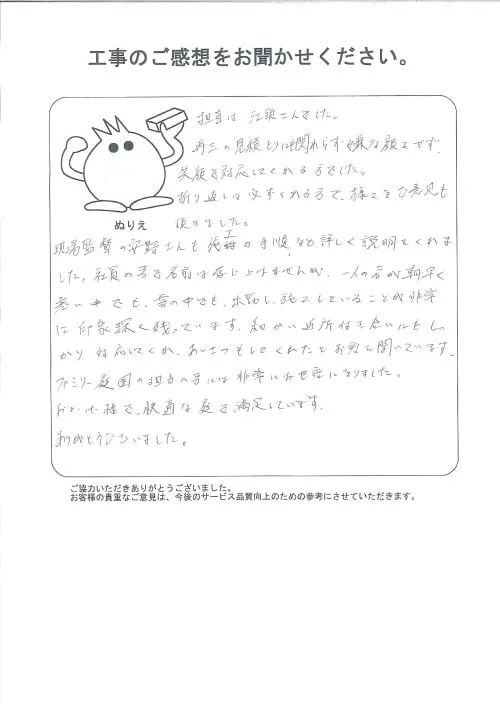 工事のご感想をお聞かせください。
担当は、江頭さんでした。
再三の見積もりにも関わらず嫌な顔もせず、
笑顔で対応してくれる方でした。
折り返しは必ずくれる方で、様々なご意見も
頂きました。
ぬりえ
現場監督の安野さんも施工の手順など詳しく説明をくれま
した。社員の方を名前は存じ上げませんが、一人の方が朝早く
寒い中でも、雪の中でも、出勤し、施工していることが非常
に印象深く残っています。細かい近所付き合いにもしっ
かり対応してくれ、あいさつもしてくれたとお聞いています。
ファミリー庭園の担当の方には非常にお世話になりました。
おかげ様で、快適な庭で、満足しています。
ありがとうございました。
ご協力いただきありがとうございました。
お客様の貴重なご意見は、今後のサービス品質向上のための参考にさせていただきます。